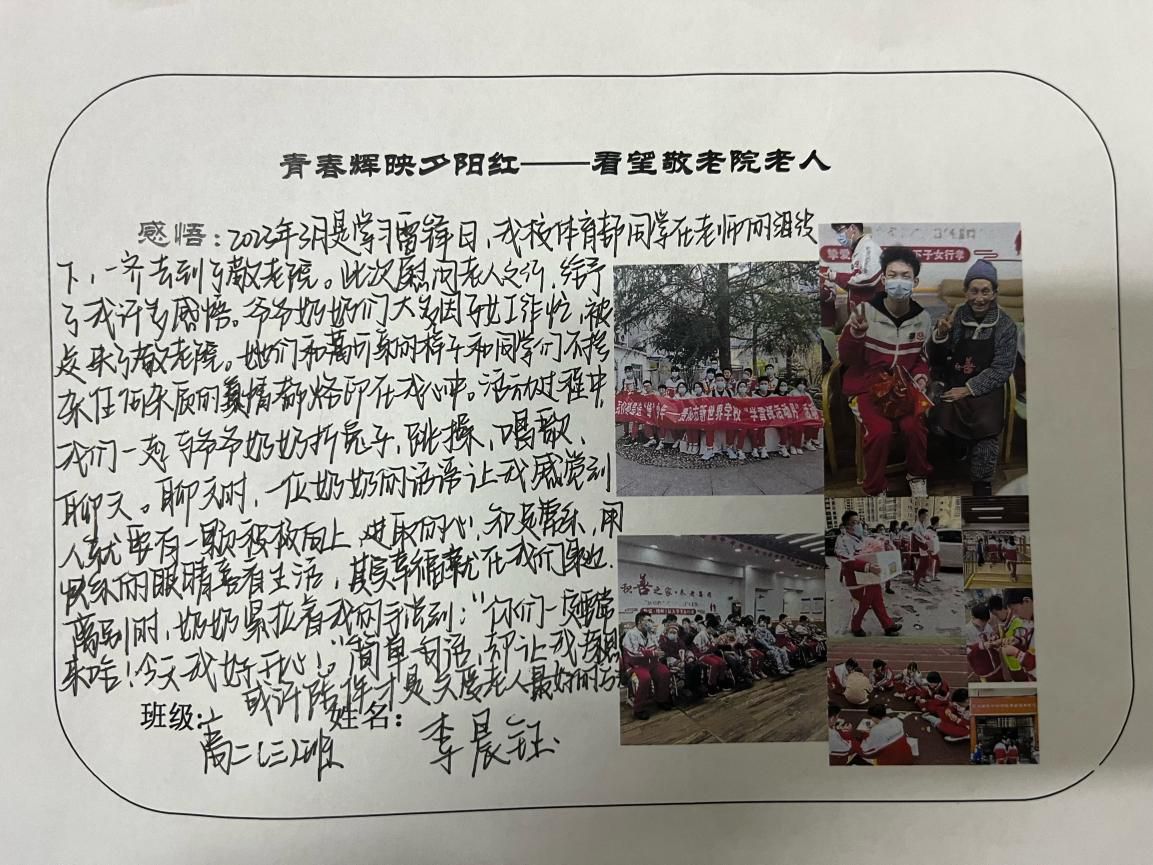 青春辉映夕阳红——看望敬老院老人
感悟：2023年3月是学习雷锋日，我校体育部同学在老师的组织
下，一齐去到了敬老院。此次慰问老人之行，给予
了我许多感悟。爷爷奶奶们大多因子女工作忙，被
送来了敬老院。她们和蔼可亲的样子和同学们不掺
杂任何杂质的真情都烙印在我心中。活动过程中，
我们一起与爷爷奶奶折兔子，跳操，唱歌，
聊天。聊天时，一位奶奶的话语让我感觉到
人就要有一颗积极向上、进取的心，知足常乐，用
快乐的眼睛去看生活，其实幸福就在我们身边。
离别时，奶奶紧拉着我的手说到：“你们一定要常
来啥！今天我好开心！”简单一句话，却让我
或许陪伴才是关爱老人最好的
班级： 姓名：
高二（三）班 李晨钰
挚爱 子女行孝
新世界学校“学雷锋活动月”
积善之家·养老集团
善